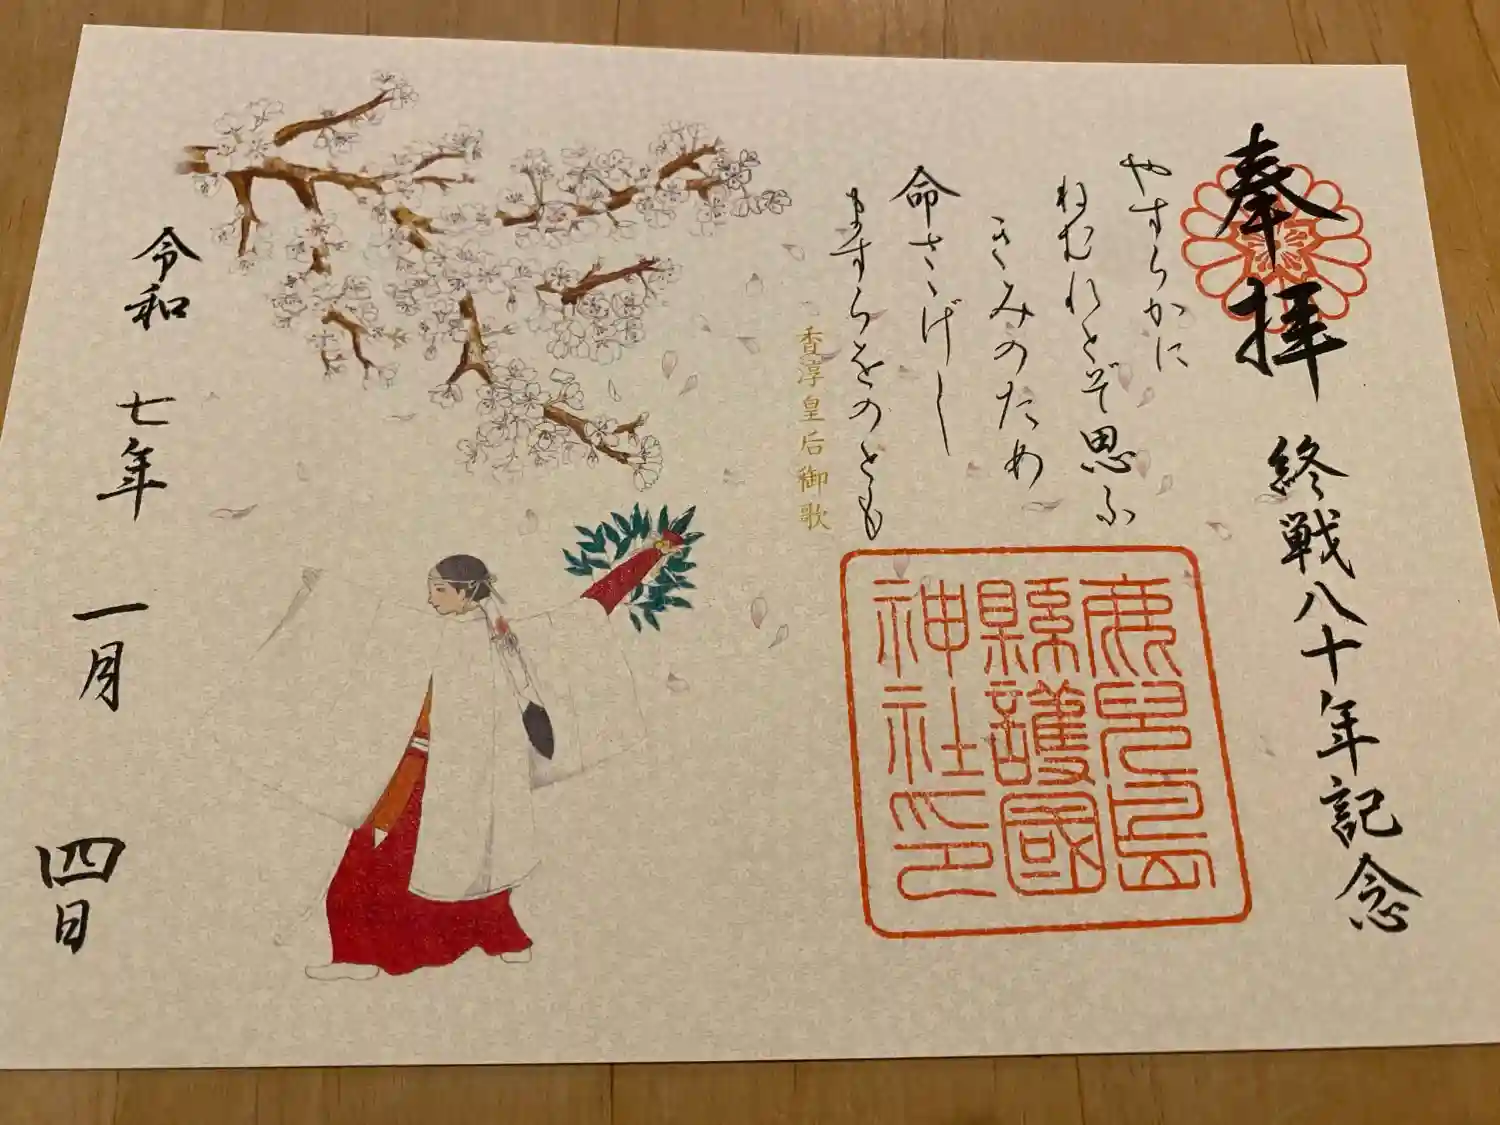 奉拝
終戦八十年記念
やすらかに
ねむれとぞ思ふ
きみのため
命さゝげし
ますらをのとも
香淳皇后御歌
鹿児島
縣護國
神社印
令和七年一月四日